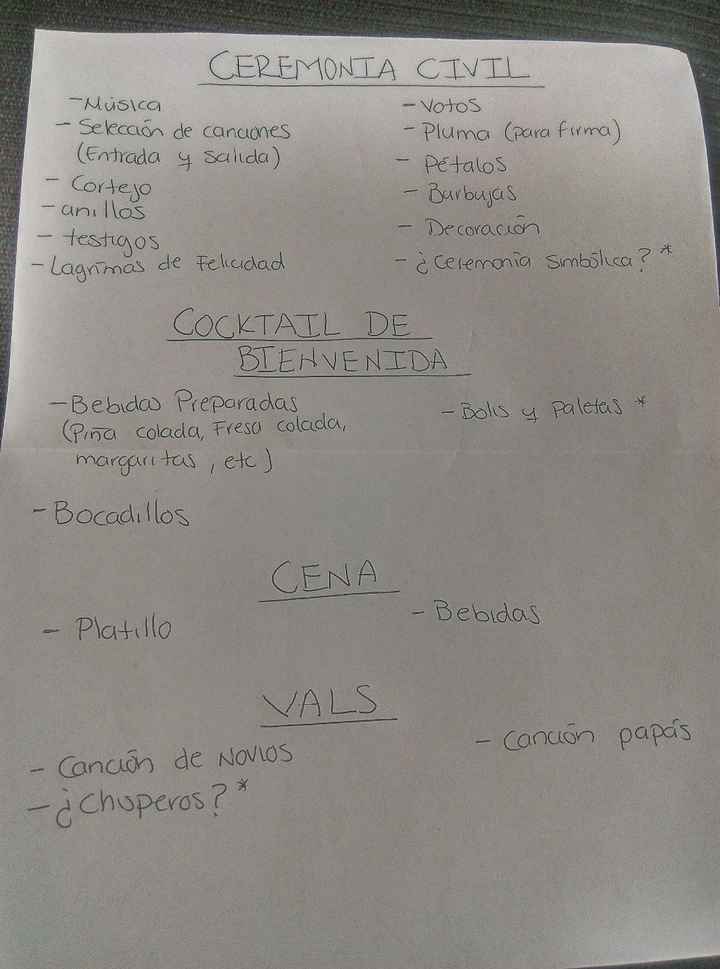 CEREMONIA CIVIL
- Música
- Selección de canciones
(Entrada y salida)
- Cortejo
- anillos
- testigos
- Lagrimas de Felicidad
- Votos
- Pluma (para firma)
- Pétalos
- Burbujas
- Decoración
- ¿Ceremonia Simbólica? *
COCKTAIL DE
BIENVENIDA
- Bebidas Preparadas
(Piña colada, Fresa colada,
margaritas, etc)
- Bocadillos
- Bolis y Paletas *
CENA
- Platillo
- Bebidas
VALS
- Canción de Novios
- ¿Chuperos? *
- Canción papás